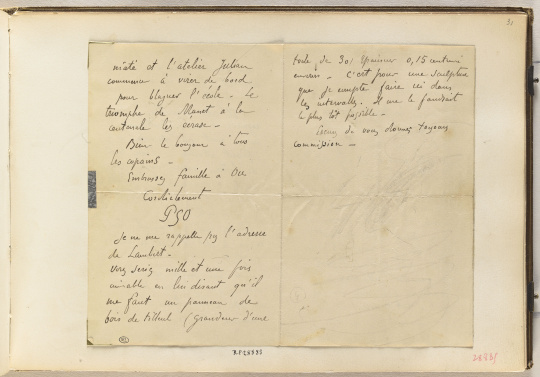 31
miété et l'atelier Julian
commence à virer de bord
pour blaguer l'école. Le
triomphe de Manet à la
centenale les écrase.
Bien le bonjour à tous
les copains.
Embrassez famille à
Cordialement
PGO
Je ne me rappelle pas l'adresse
de
vous seriez mille et une fois
aimable en lui disant qu'il
me faut un panneau de
bois de tilleul (Grandeur d'une
toile de 30) Epaisseur 0,15 centim
environ. C'est pour une sculpture
que je compte faire ici dans
les intervalles. Il me le faudrait
le plus tôt possible.
de vous donner toujours
commission.
R.F.28895
28895